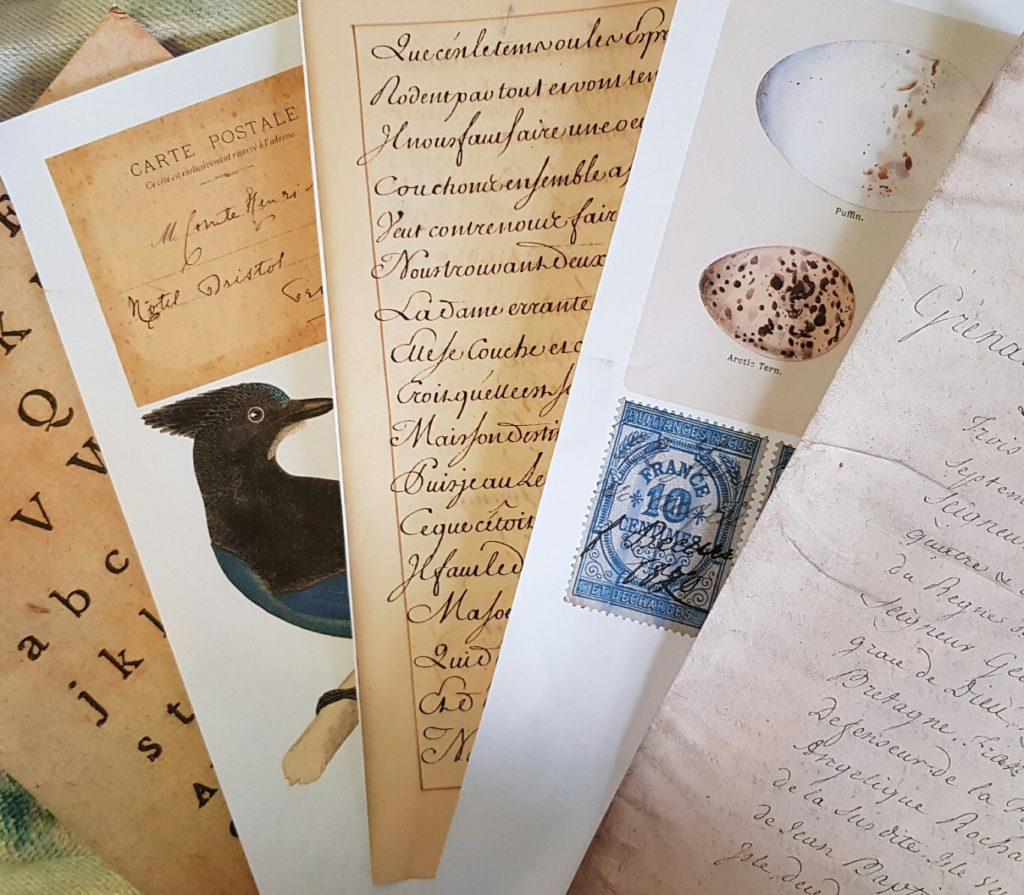 K
Q
V W
a b c
j k l
s t
A
CARTE POSTALE
Ce côté est exclusivement réservé à l'adresse.
M Comte Henri
Hôtel Bristol
Que c'én le tems ou les Espr
Rodent partout et vous ten
Il nous faut faire une oeu
Couchons ensemble as
Veut contre nous fair
Nous trouvant Deux
La dame errante
Elle se Couche et
Crois qu'elle en
Maison desti
Puis je au Le
Ce que c'étoit
Il faut le d
Qui d
Puffin.
Arctic Tern.
QUITTANCES REÇUS
FRANCE
10
CENTIMES
ET DÉCHARGES
Grena
Trois
Septem
Seigneur
quatre
du Regne
Seigneur Geo
grace de Dieu
Bretagne, Fran
Defenseur de la
Angelique Rocha
de la Susdite Isle
de Jean Bapt
Isle du